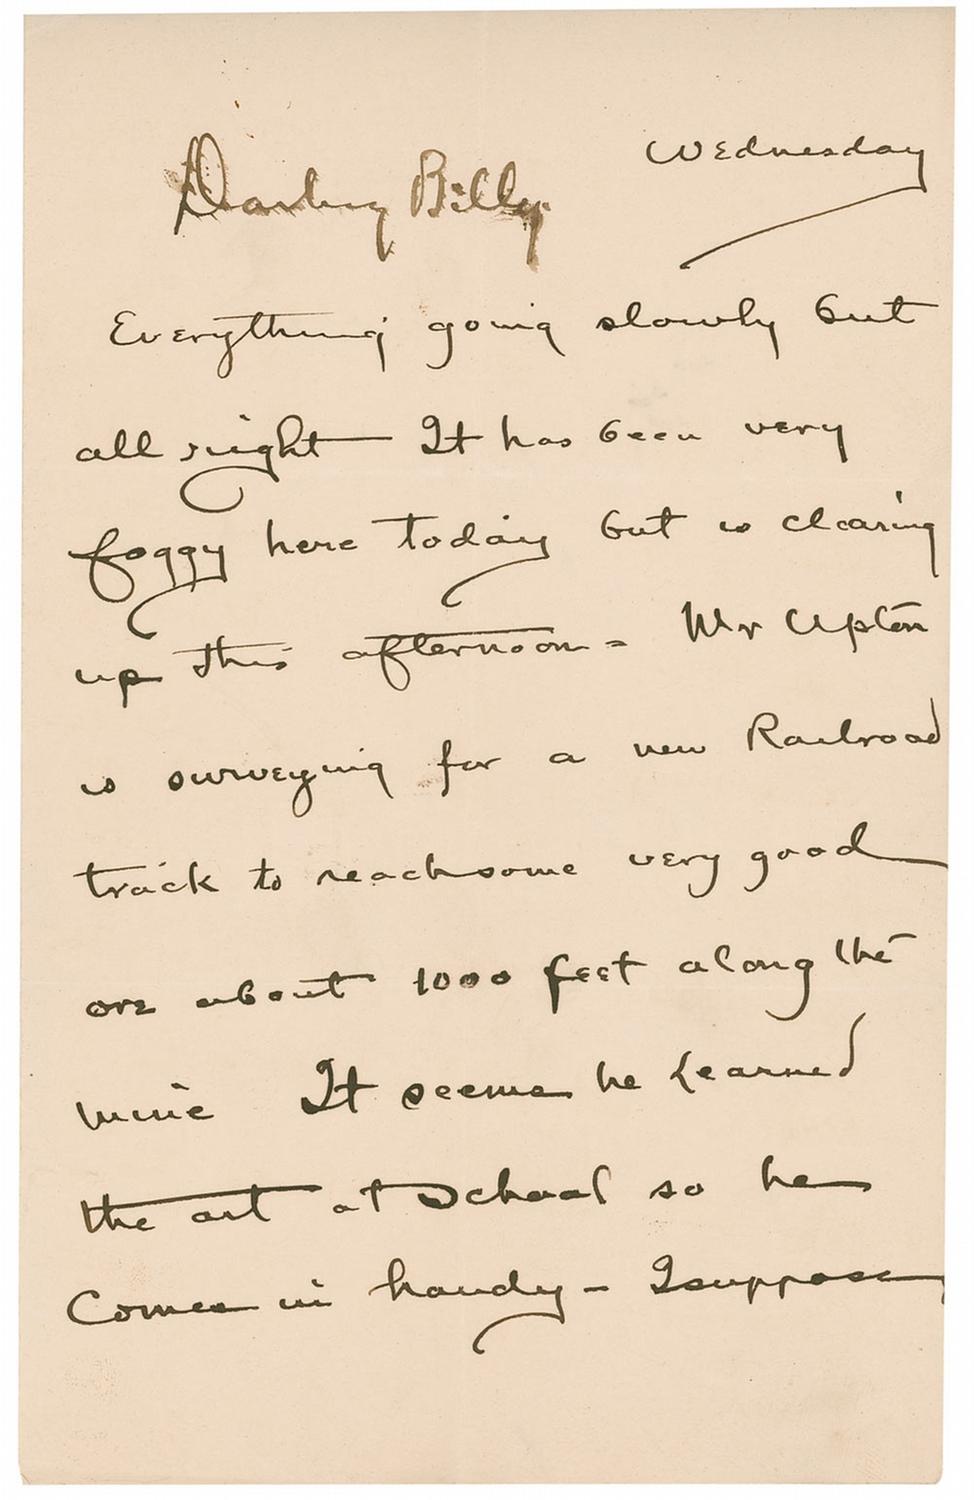 Wednesday
Darling Billy.
Everything going slowly but
all right It has been very
foggy here today but is clearing
up this afternoon = Mr Upton
is surveying for a new Railroad
track to reach some very good
ore about 1000 feet along the
mine It seems he learned
the art at School so he
Comes in handy – I suppose